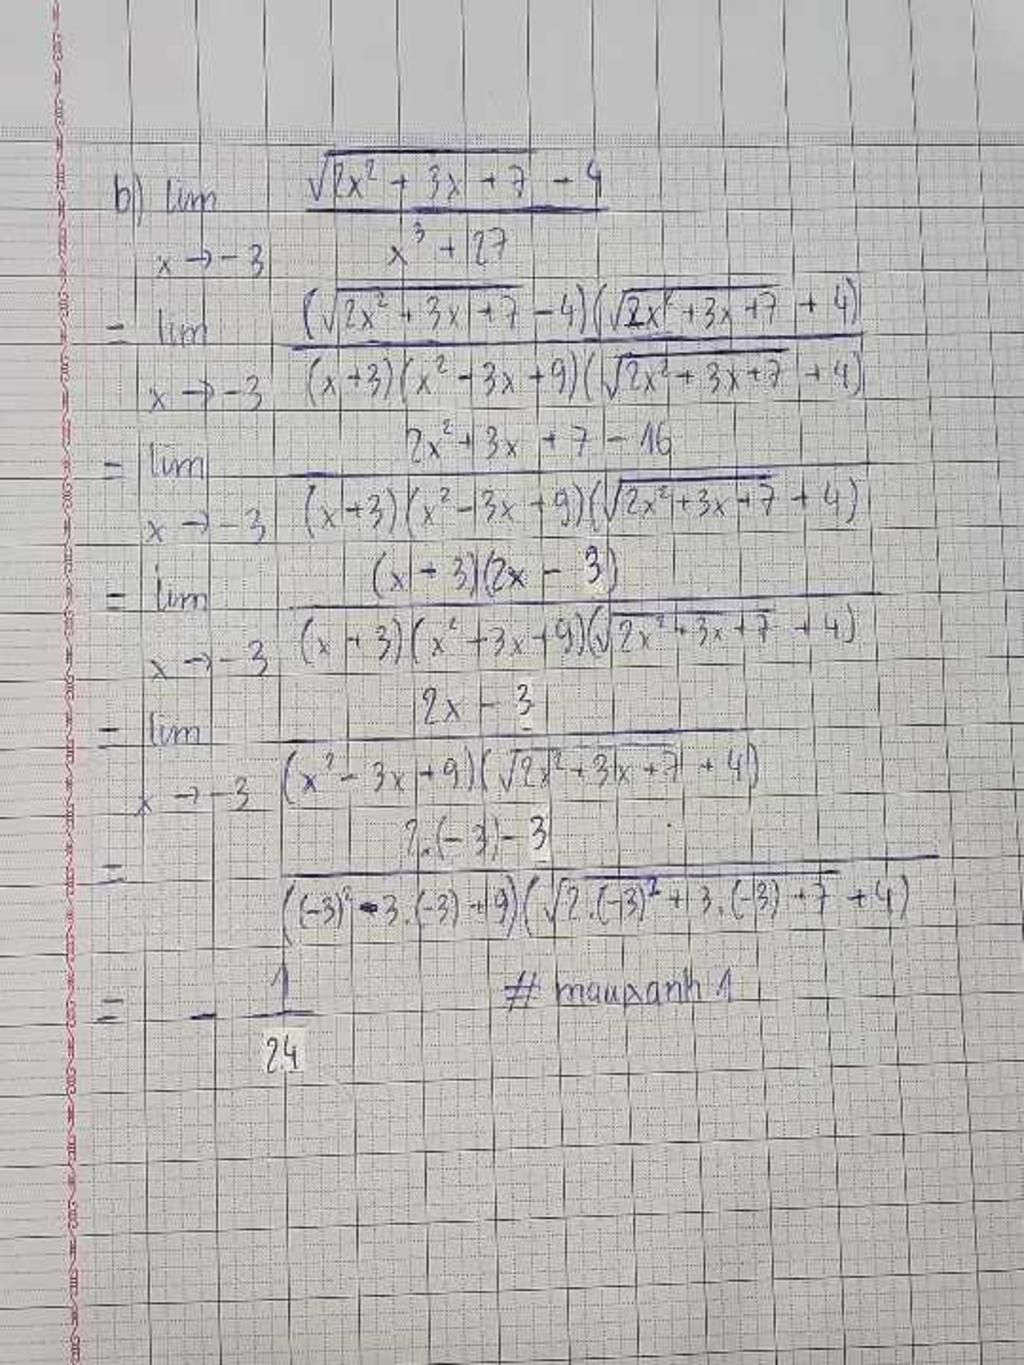 b) lim √(2x² + 3x + 7) - 4
x → -3 x³ + 27
= lim (√(2x² + 3x + 7) - 4)(√(2x² + 3x + 7) + 4)
x → -3 (x + 3)(x² - 3x + 9)(√(2x² + 3x + 7) + 4)
= lim 2x² + 3x + 7 - 16
x → -3 (x + 3)(x² - 3x + 9)(√(2x² + 3x + 7) + 4)
= lim (x + 3)(2x - 3)
x → -3 (x + 3)(x² + 3x + 9)(√(2x² + 3x + 7) + 4)
= lim 2x - 3
x → -3 (x² - 3x + 9)(√(2x² + 3x + 7) + 4)
= 2.(-3) - 3
((-3)² - 3.(-3) + 9)(√(2.(-3)² + 3.(-3) + 7) + 4)
= - 1
24
# mauxanh 1